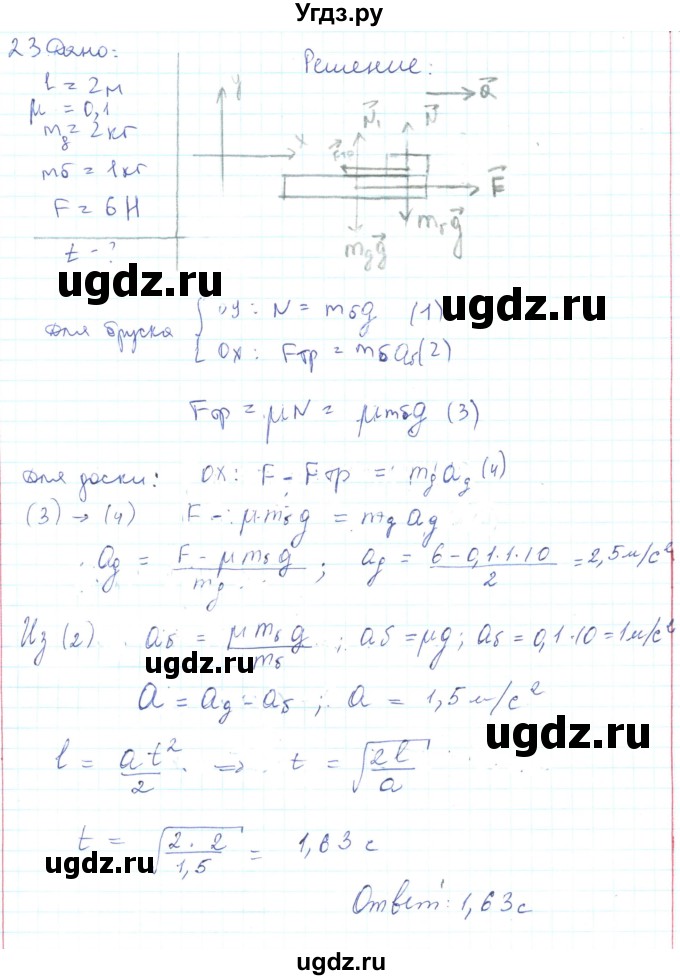 Угдз.ру
23 Дано:
l = 2м
μ = 0,1
mд = 2кг
mб = 1кг
F = 6 Н
t - ?
Решение:
y
x
N₁
N
a
Fтр
F
mдg
mбg
ugdz.ru
ugdz.ru
Для бруска
оy: N = mбg (1)
ОХ: Fтр = mбaб (2)
Fтр = μN = μmбg (3)
Для доски: ОХ: F - Fтр = mдaд (4)
(3) → (4) F - μmбg = mдaд
aд = F - μmбg / mд ; aд = 6 - 0,1·1·10 / 2 = 2,5 м/с²
Из (2) aб = μmбg / mб ; aб = μg ; aб = 0,1·10 = 1 м/с²
ugdz.ru
a = aд - aб ; a = 1,5 м/с²
ugdz.ru
l = at²/2 ⇒ t = √2l/a
t = √2·2/1,5 = 1,63 с
ugdz.ru
Ответ: 1,63с
ugdz.ru
ugdz.ru